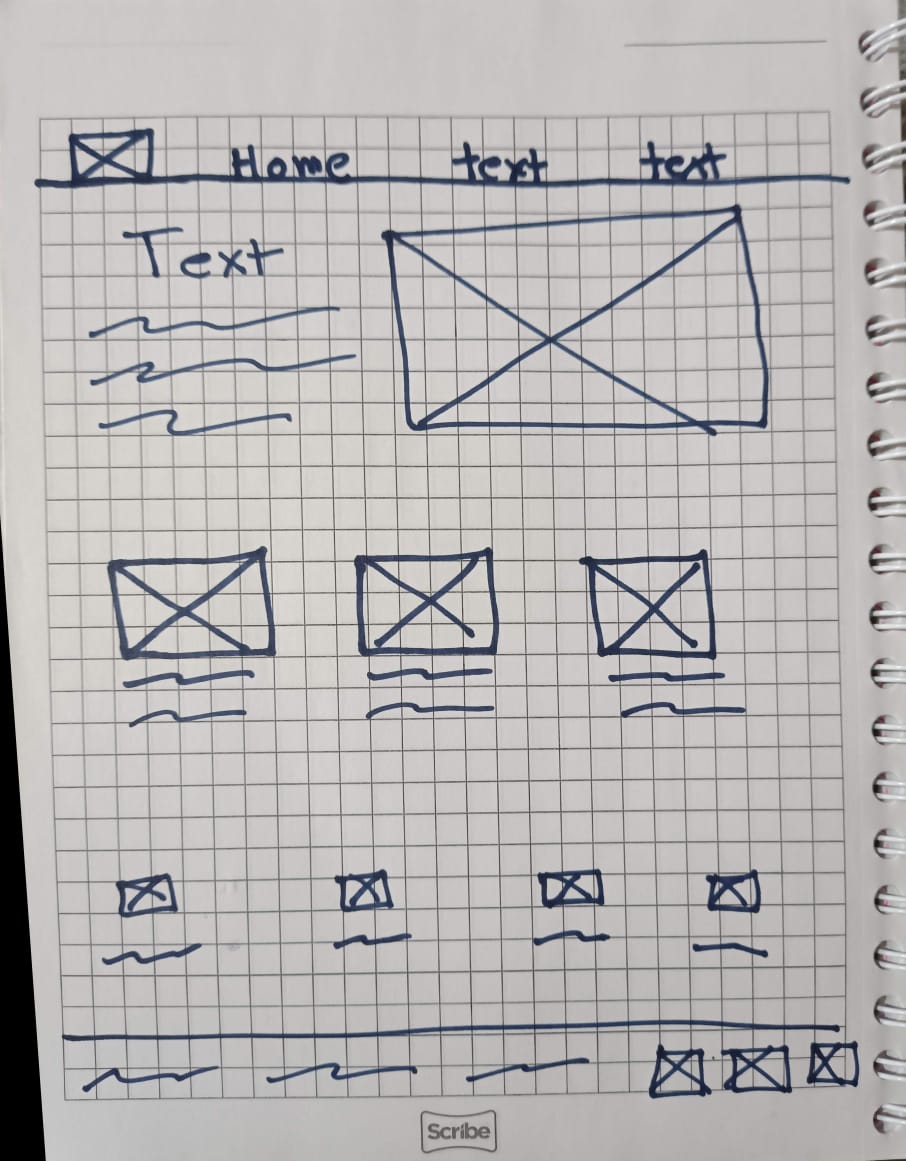 Home text text
Text
Scribe